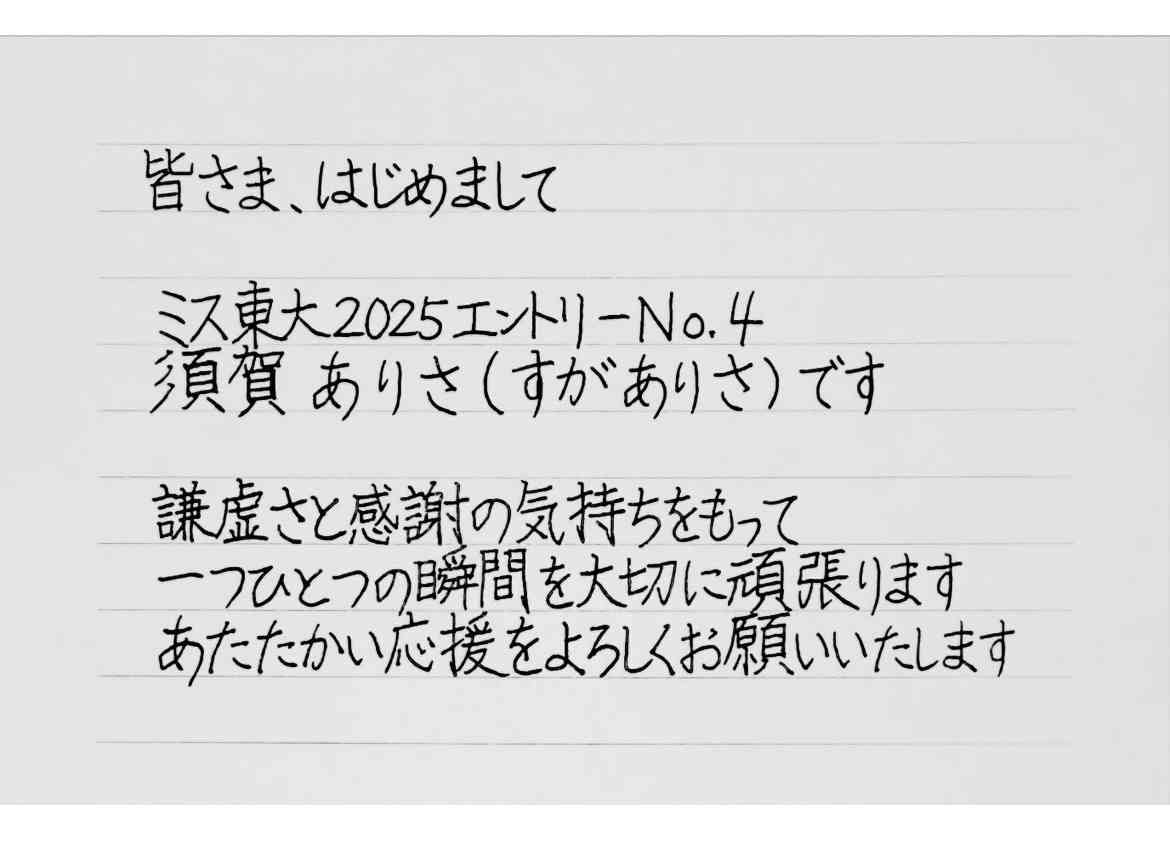 皆さま、はじめまして
ミス東大2025エントリーNo.4
須賀 ありさ(すがありさ)です
謙虚さと感謝の気持ちをもって
一つひとつの瞬間を大切に頑張ります
あたたかい応援をよろしくお願いいたします